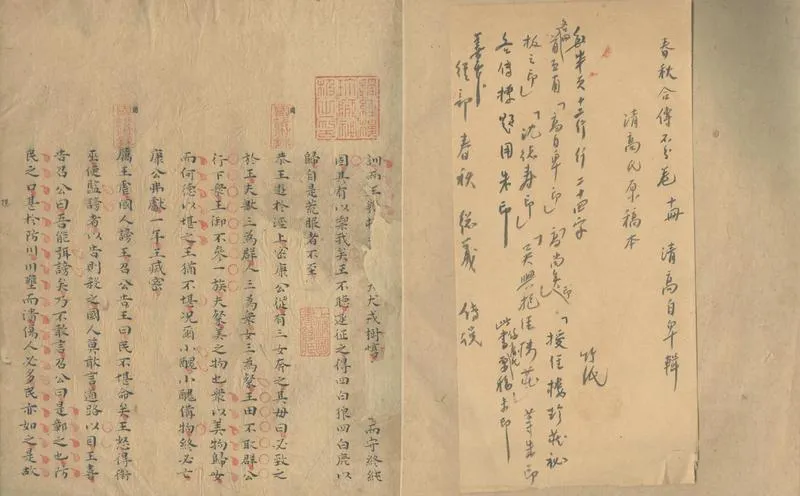 春秋合傳不分卷 十冊 清高自卑輯
清高氏原稿本
竹紙
每半頁十二行行二十四字
前有「高自卑印」「授經樓珍藏秘
板之印」「沈德壽印」「吳興抱經樓藏」等朱印
各傳標題用朱印
善本
經部 春秋 總義 傳說
訓而王 犬戎樹惇 而守終純
固其有以禦我矣王不聽遂征之得四白狼四白鹿以
歸自是荒服者不至
恭王遊於涇上密康公從有三女奔之其母曰必致之
於王夫獸三為群人三為衆女三為粲王田不取群公
行下衆王御不參一族夫粲美之物也衆以美物歸女
而何德以堪之王猶不堪况爾小醜小醜備物終必亡
康公弗獻一年王滅密
厲王虐國人謗王召公告王曰民不堪命矣王怒得衛
巫使監謗者以告則殺之國人莫敢言道路以目王喜
告召公曰吾能弭謗矣乃不敢言召公曰是鄣之也防
民之口甚於防川川壅而潰傷人必多民亦如之是故